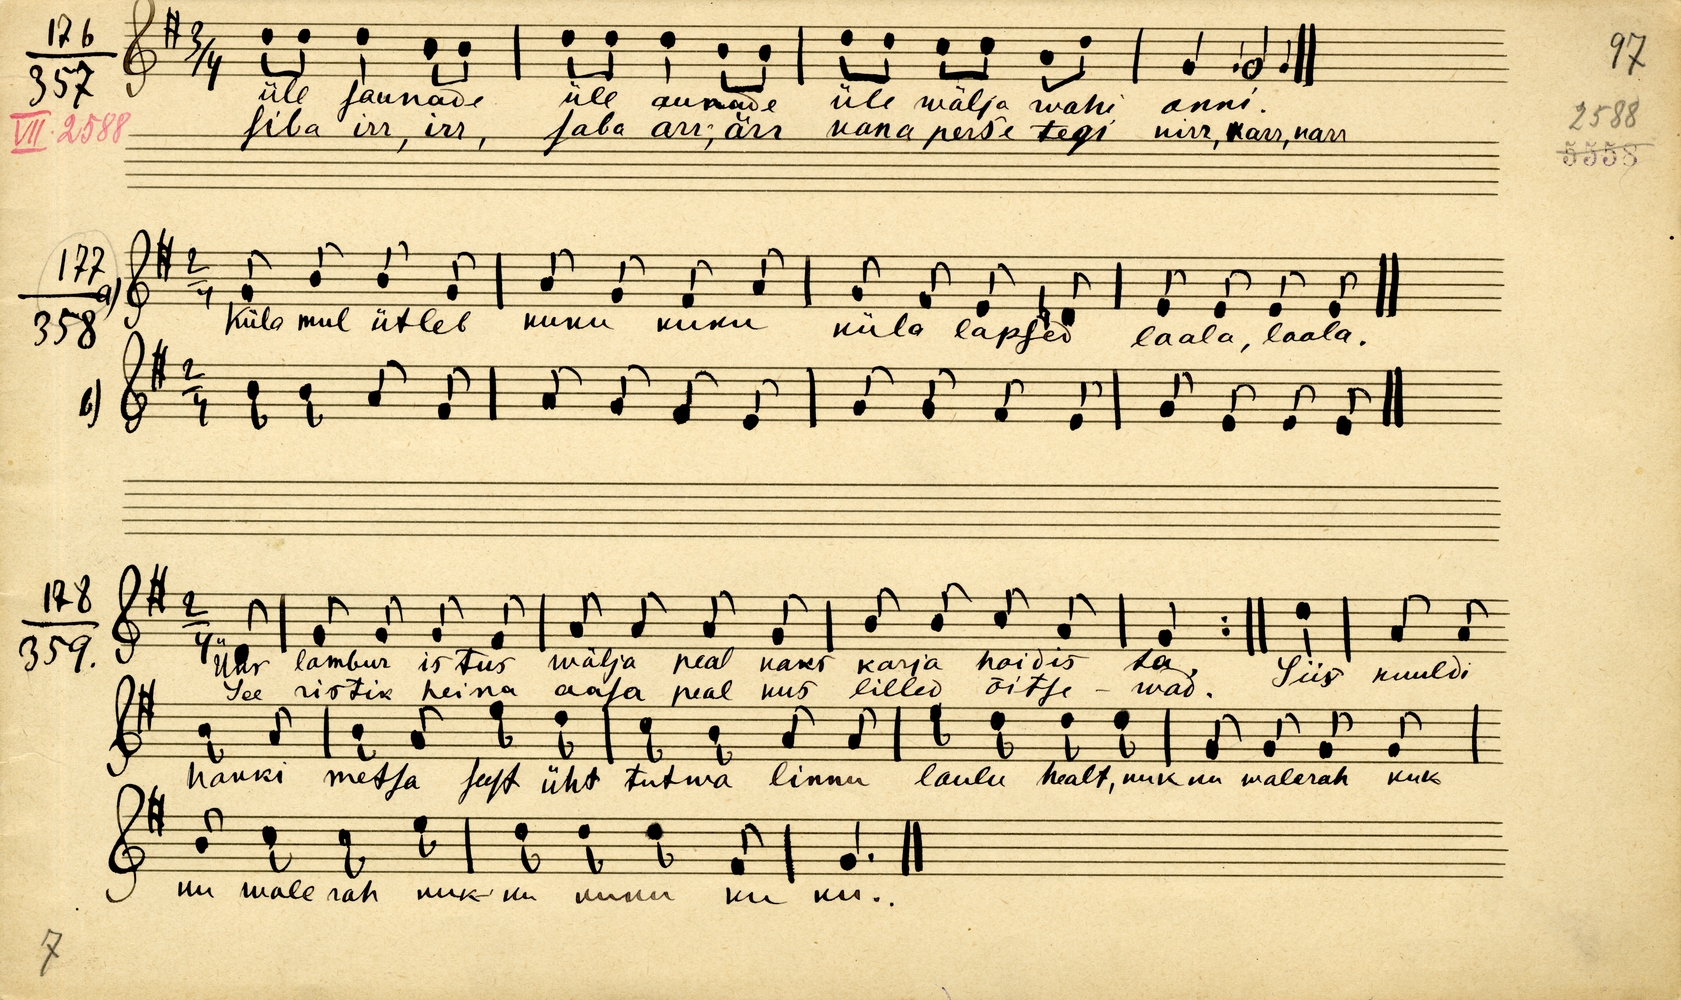 176
357
VII. 2588
97
2588
5558
3/4
üle saunade üle aunade üle wälja wahi anni.
siba irr, irr, saba arr, ärr kana perse tegi nirr, karr, narr
177
358
a)
2/4
Küla mul ütleb kuku kuku küla lapsed laala, laala.
b)
2/4
178
359.
2/4
lambur istus wälja peal kaks karja hoidis ta, Siis kuuldi
See ristik heina aasa peal kus lilled õitse - wad.
kauki metsa seest üht tutwa linnu laulu healt, kuk ku walerah kuk
ku wale rah kuk ku kuku ku ku..
7